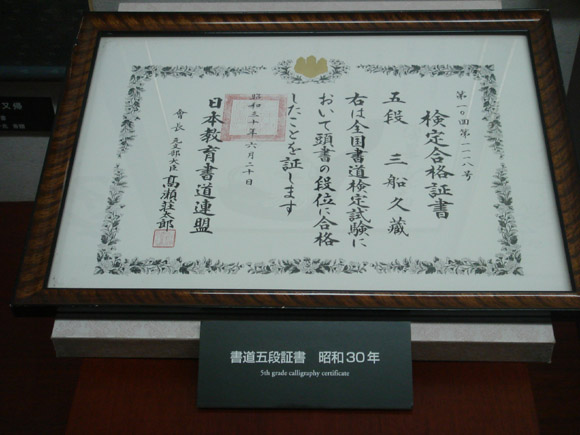 第一〇回第一一八号
検定合格証書
五段 三船久蔵
右は全国書道検定試験に
おいて頭書の段位に合格
したことを証します
昭和三十年六月二十日
日本教育書道連盟
會長 元文部大臣 髙瀬荘太郎
書道五段証書 昭和30年
5th grade calligraphy certificate